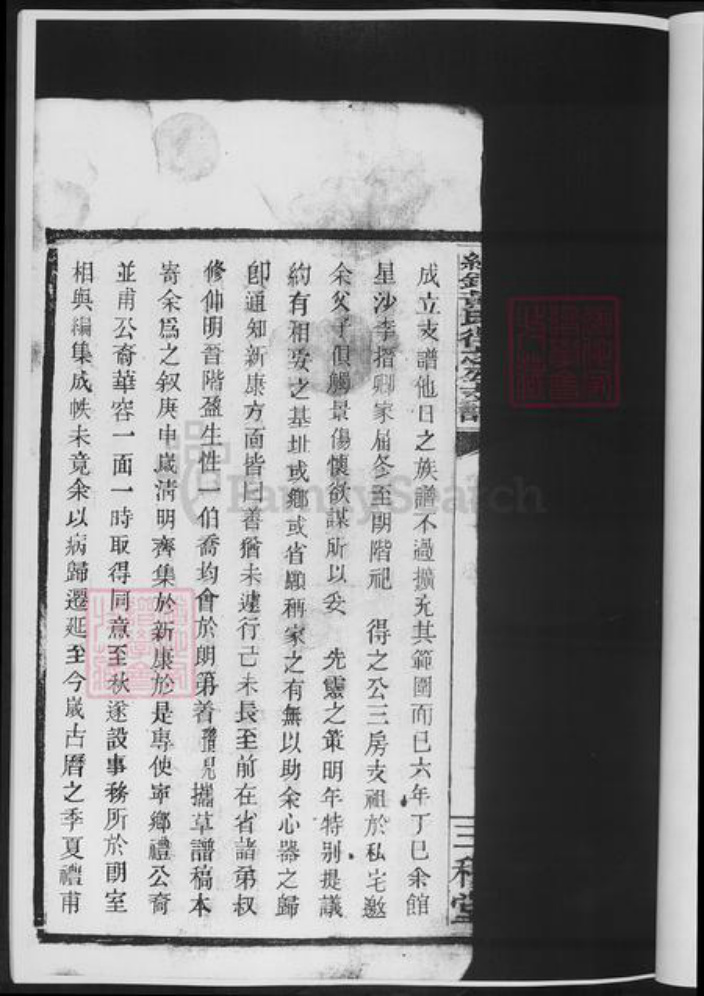 成立支譜他日之族譜不過擴充其範圍而已六年丁巳余館
星沙李搢卿家屆冬至期階祀 得之公三房支祖於私宅邀
余父子俱觸景傷懷欲謀所以妥 先靈之策明年特别提議
約有相安之基址或鄉或省顯稱家之有無以助余心器之歸
卽通知新康方面皆曰善猶未遽行己未長至前在省諸弟叔
修仙明晉階盈生性一伯喬均會於朗第着兒攜草譜稿本
寄余爲之叙庚申歲清明齊集於新康於是專使寧鄉禮公裔
並甫公裔華容一面一時取得同意至秋遂設事務所於朗室
相與編集成帙未竟余以病歸遷延至今歲古曆之季夏禮甫
三槐堂
FamilySearch